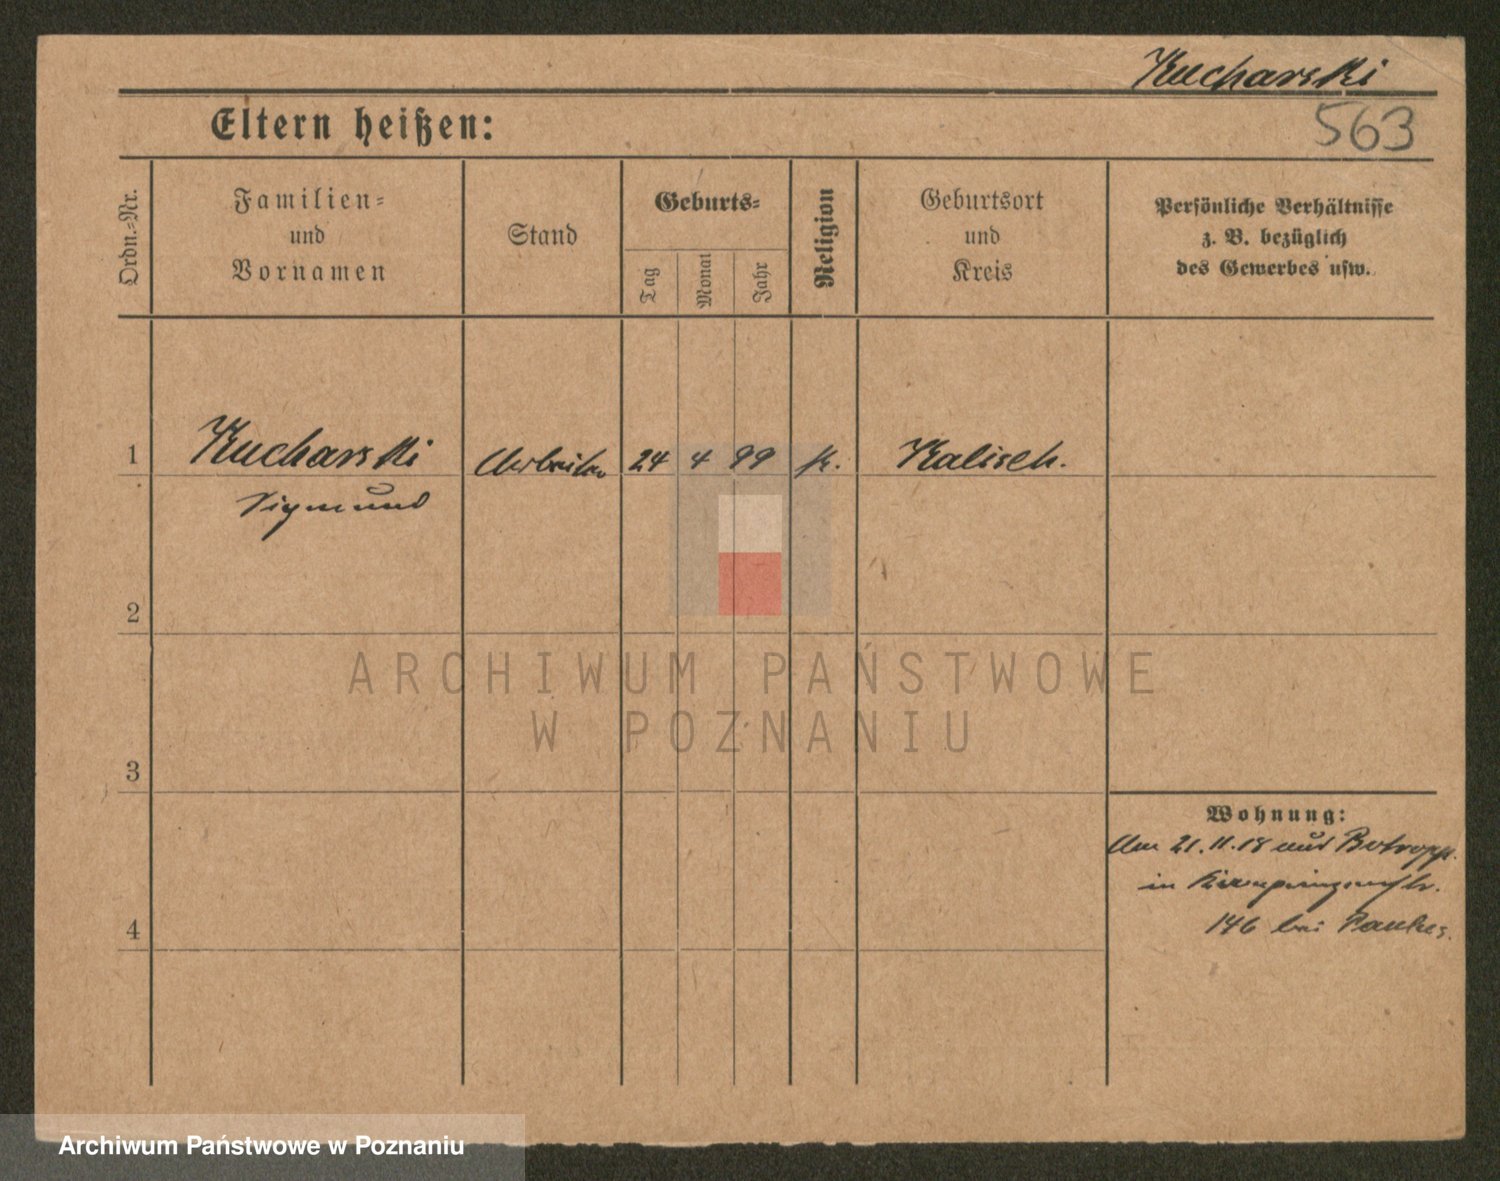 Kucharski
563
Eltern heißen:
Ordn.-Nr.
Familien-
und
Vornamen
Stand
Geburts-
Tag
Monat
Jahr
Religion
Geburtsort
und
Kreis
Persönliche Verhältnisse
z. B. bezüglich
des Gewerbes usw.
1 Kucharski Arbeiter 24 4 99 k. Kalisch.
Sigmund
2
ARCHIWUM PAŃSTWOWE
W POZNANIU
3
Wohnung:
Am 21.11.18 aus Botropp.
in Kronprinzenstr.
4
146 bei
Archiwum Państwowe w Poznaniu